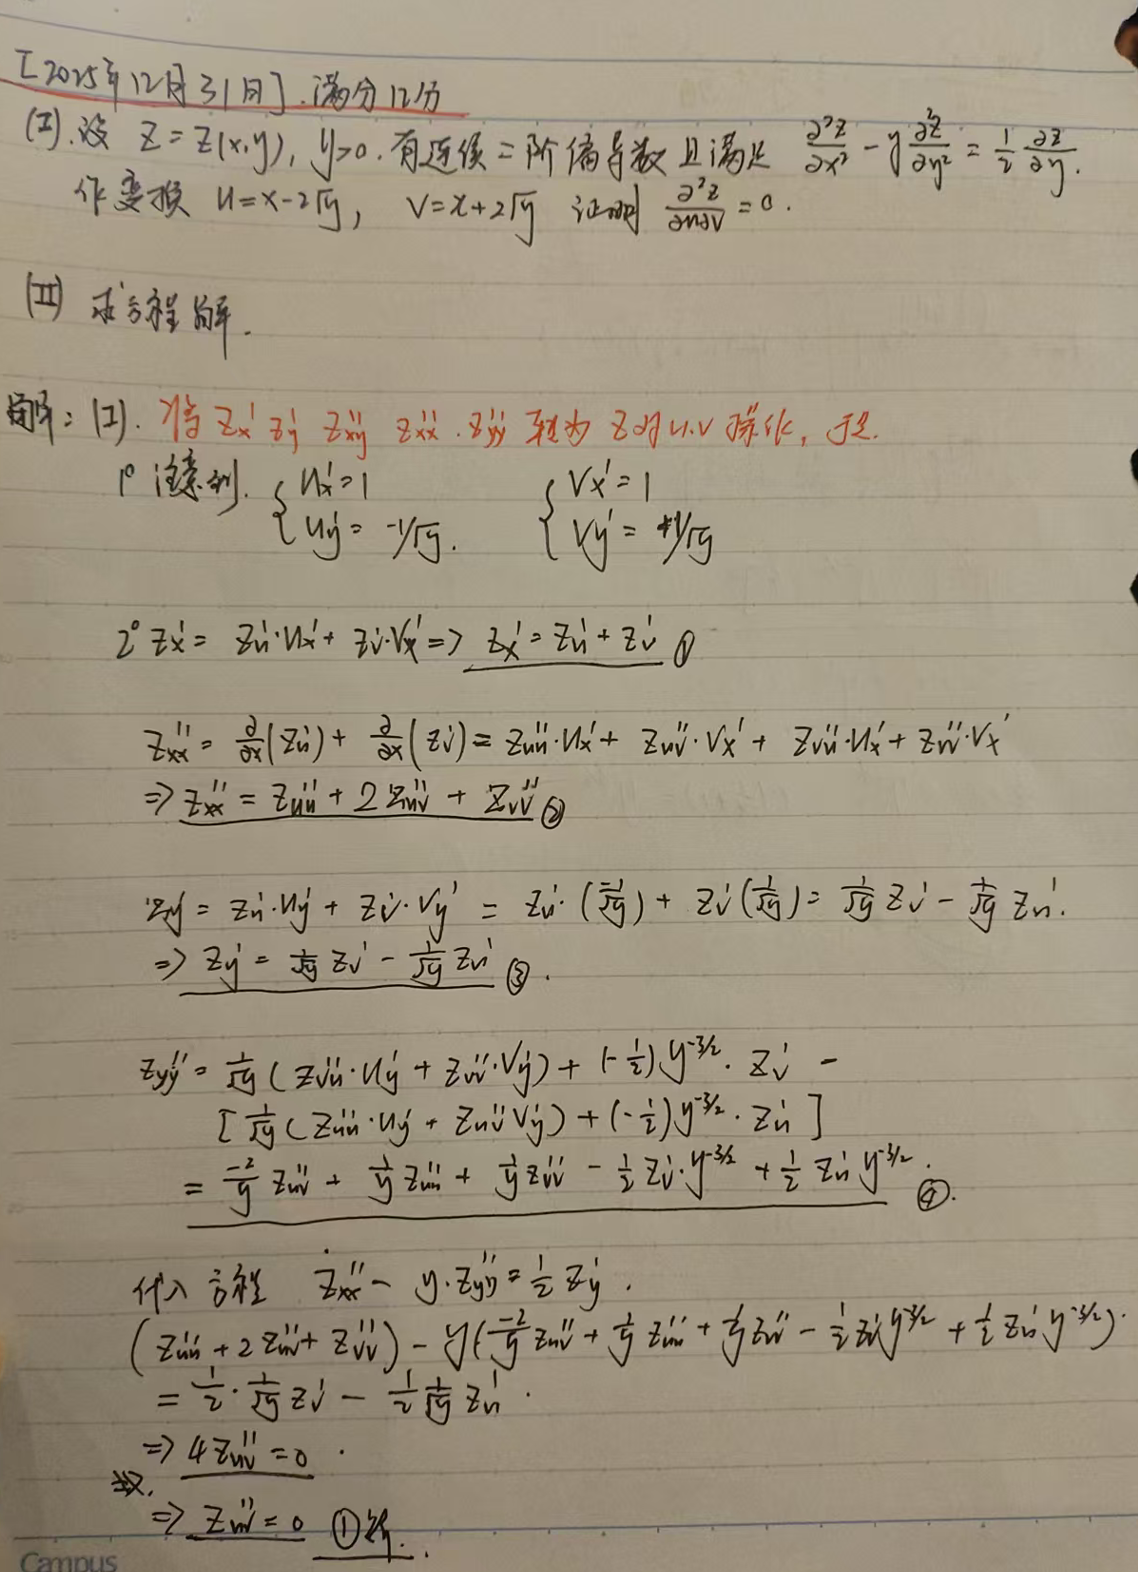 [2025年12月31日].满分12分
(I).设 z=z(x,y), y>0.有连续二阶偏导数且满足 ∂²z/∂x² - y ∂²z/∂y² = 1/2 ∂z/∂y.
作变换 u=x-2√y, v=x+2√y 证明 ∂²z/∂u∂v = 0.
(II) 求方程的解.
解: (I). 将 Zx' Zy' Zxy'' Zxx''. Zyy'' 转为 Z对u.v操作, 于是.
1° 注意到. { Ux'=1 { Vx'=1
Uy'= -1/√y. Vy'= +1/√y
2° Zx'= Zu'·Ux'+ Zv'·Vx' => Zx'=Zu'+Zv' ①
Zxx''= ∂/∂x(Zu')+ ∂/∂x(Zv')= Zuu''·Ux'+ Zuv''·Vx'+ Zvu''·Ux'+ Zvv''·Vx'
=> Zxx''= Zuu''+ 2Zuv''+ Zvv'' ②
Zy'= Zu'·Uy'+ Zv'·Vy' = Zu'·(-1/√y)+ Zv'(1/√y)= 1/√y Zv'- 1/√y Zu'.
=> Zy'= 1/√y Zv'- 1/√y Zu' ③.
Zyy''= 1/√y(Zvu''·Uy'+ Zvv''·Vy')+ (-1/2)y^-3/2·Zv' -
[1/√y(Zuu''·Uy'+ Zuv''Vy')+(-1/2)y^-3/2·Zu']
= -2/y Zuv''+ 1/y Zuu''+ 1/y Zvv''- 1/2 Zv'·y^-3/2 + 1/2 Zu' y^-3/2. ④.
代入方程 Zxx''- y·Zyy''= 1/2 Zy'.
(Zuu''+2Zuv''+Zvv'')- y(-2/y Zuv''+ 1/y Zuu''+ 1/y Zvv''- 1/2 Zv' y^-3/2 + 1/2 Zu' y^-3/2).
= 1/2·1/√y Zv'- 1/2 1/√y Zu'.
=> 4Zuv''=0.
故.
=> Zuv''=0 ①证.
Campus